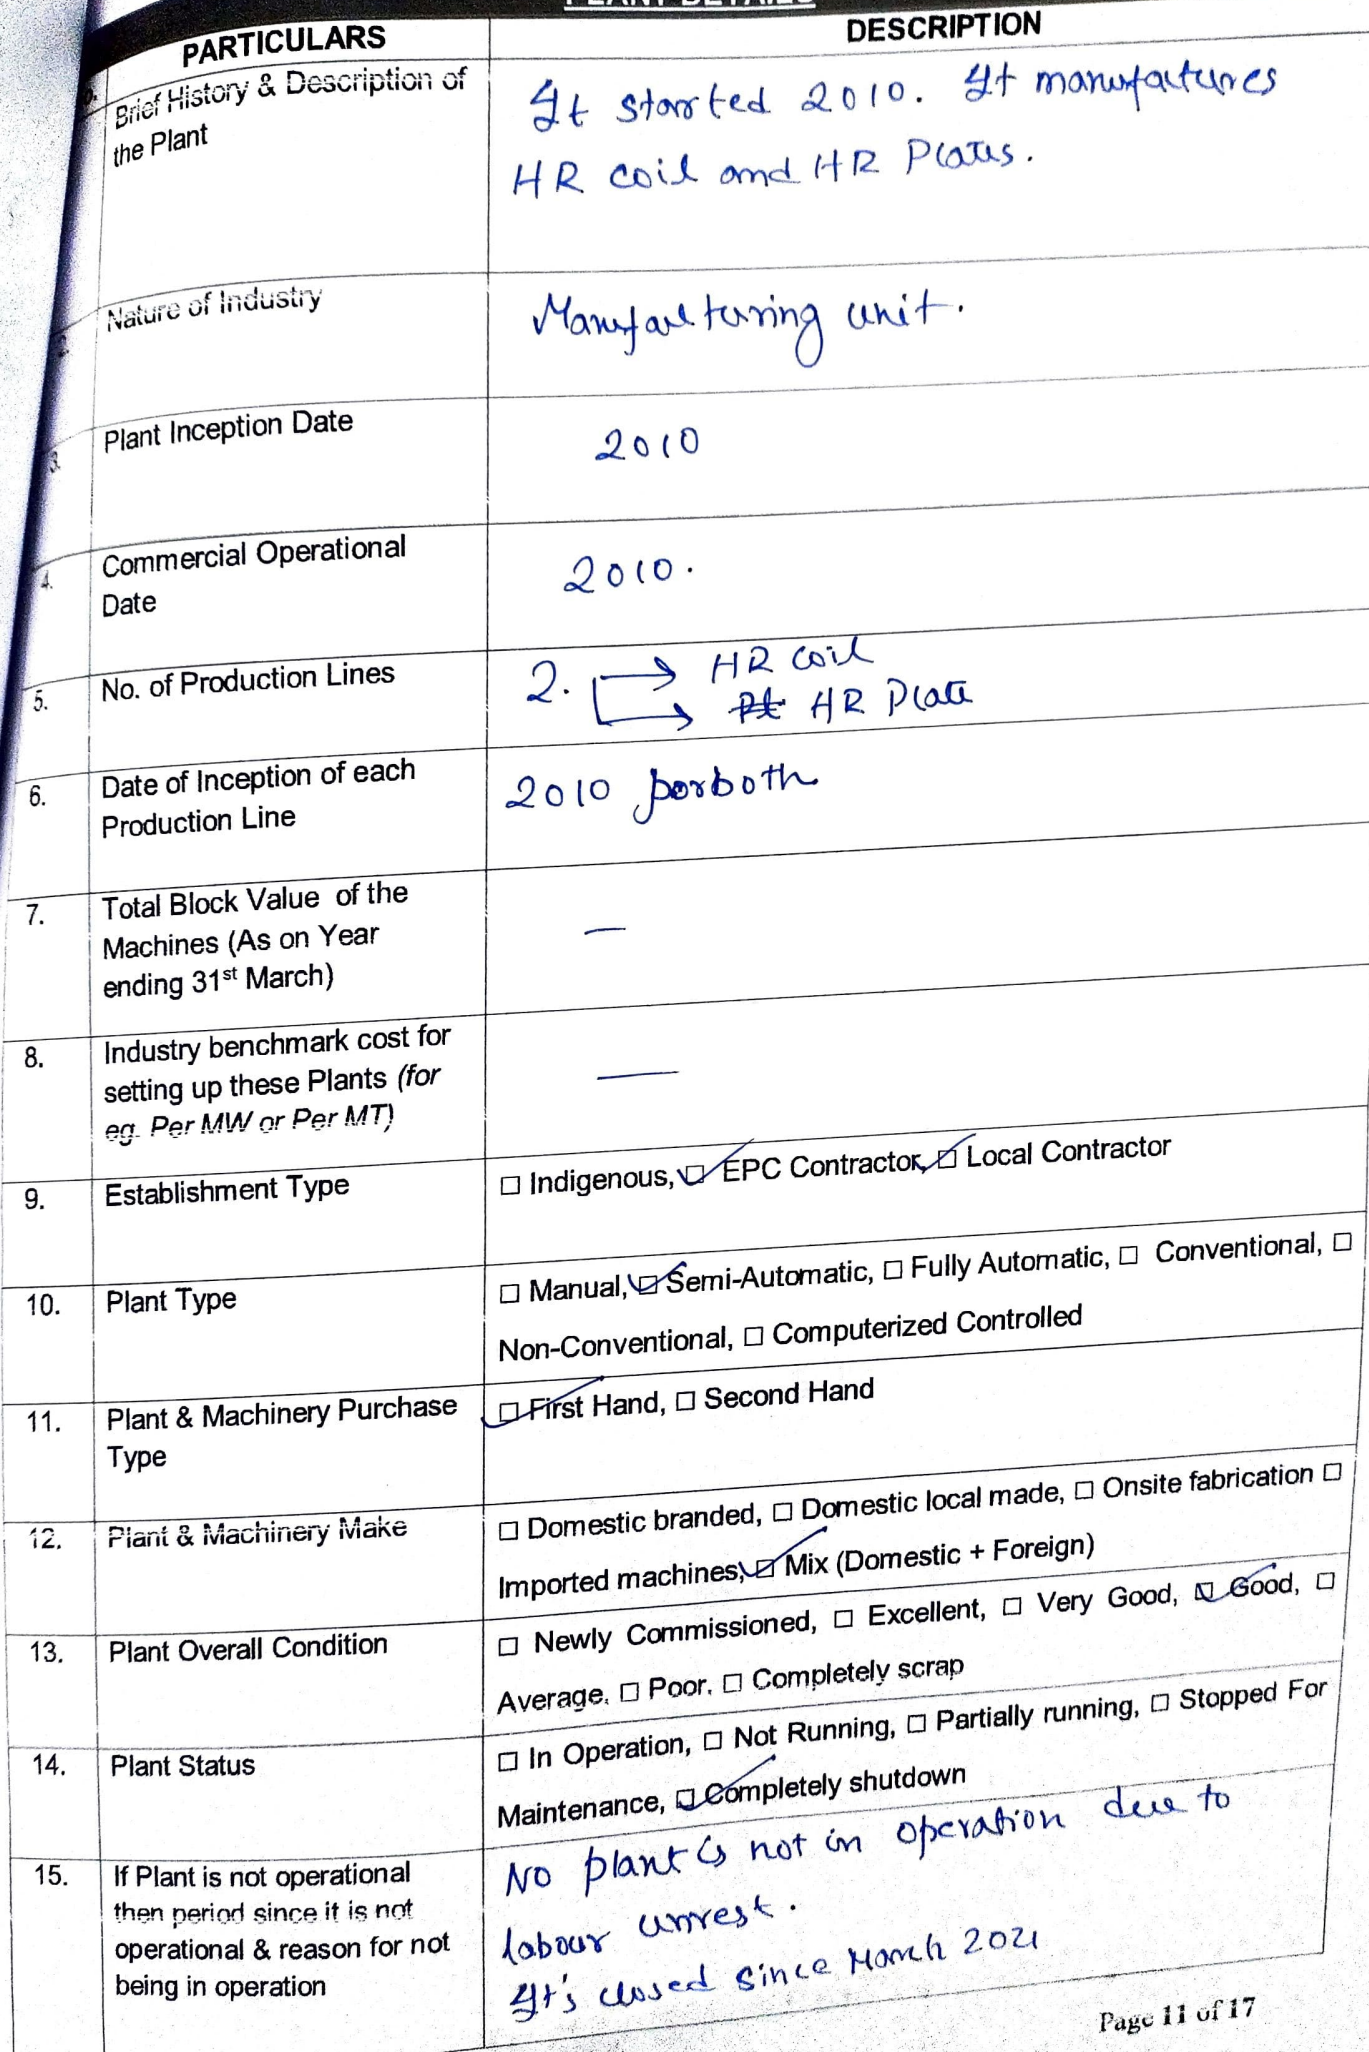 PLANT DETAILS
PARTICULARS
DESCRIPTION
Brief History & Description of
the Plant
It started 2010. It manufactures
HR coil and HR Plates.
2.
Nature of Industry
Manufacturing unit.
3.
Plant Inception Date
2010
4.
Commercial Operational
Date
2010.
5.
No. of Production Lines
2. → HR coil
→ HR Plate
6.
Date of Inception of each
Production Line
2010 for both
7.
Total Block Value of the
Machines (As on Year
ending 31st March)
—
8.
Industry benchmark cost for
setting up these Plants (for
eg. Per MW or Per MT)
—
9.
Establishment Type
☐ Indigenous, ☑ EPC Contractor, ☑ Local Contractor
10.
Plant Type
☐ Manual, ☑ Semi-Automatic, ☐ Fully Automatic, ☐ Conventional, ☐
Non-Conventional, ☐ Computerized Controlled
11.
Plant & Machinery Purchase
Type
☑ First Hand, ☐ Second Hand
12.
Plant & Machinery Make
☐ Domestic branded, ☐ Domestic local made, ☐ Onsite fabrication ☐
Imported machines, ☑ Mix (Domestic + Foreign)
13.
Plant Overall Condition
☐ Newly Commissioned, ☐ Excellent, ☐ Very Good, ☑ Good, ☐
Average, ☐ Poor, ☐ Completely scrap
14.
Plant Status
☐ In Operation, ☐ Not Running, ☐ Partially running, ☐ Stopped For
Maintenance, ☑ Completely shutdown
15.
If Plant is not operational
then period since it is not
operational & reason for not
being in operation
No plant is not in operation due to
labour unrest.
It's closed since March 2021
Page 11 of 17